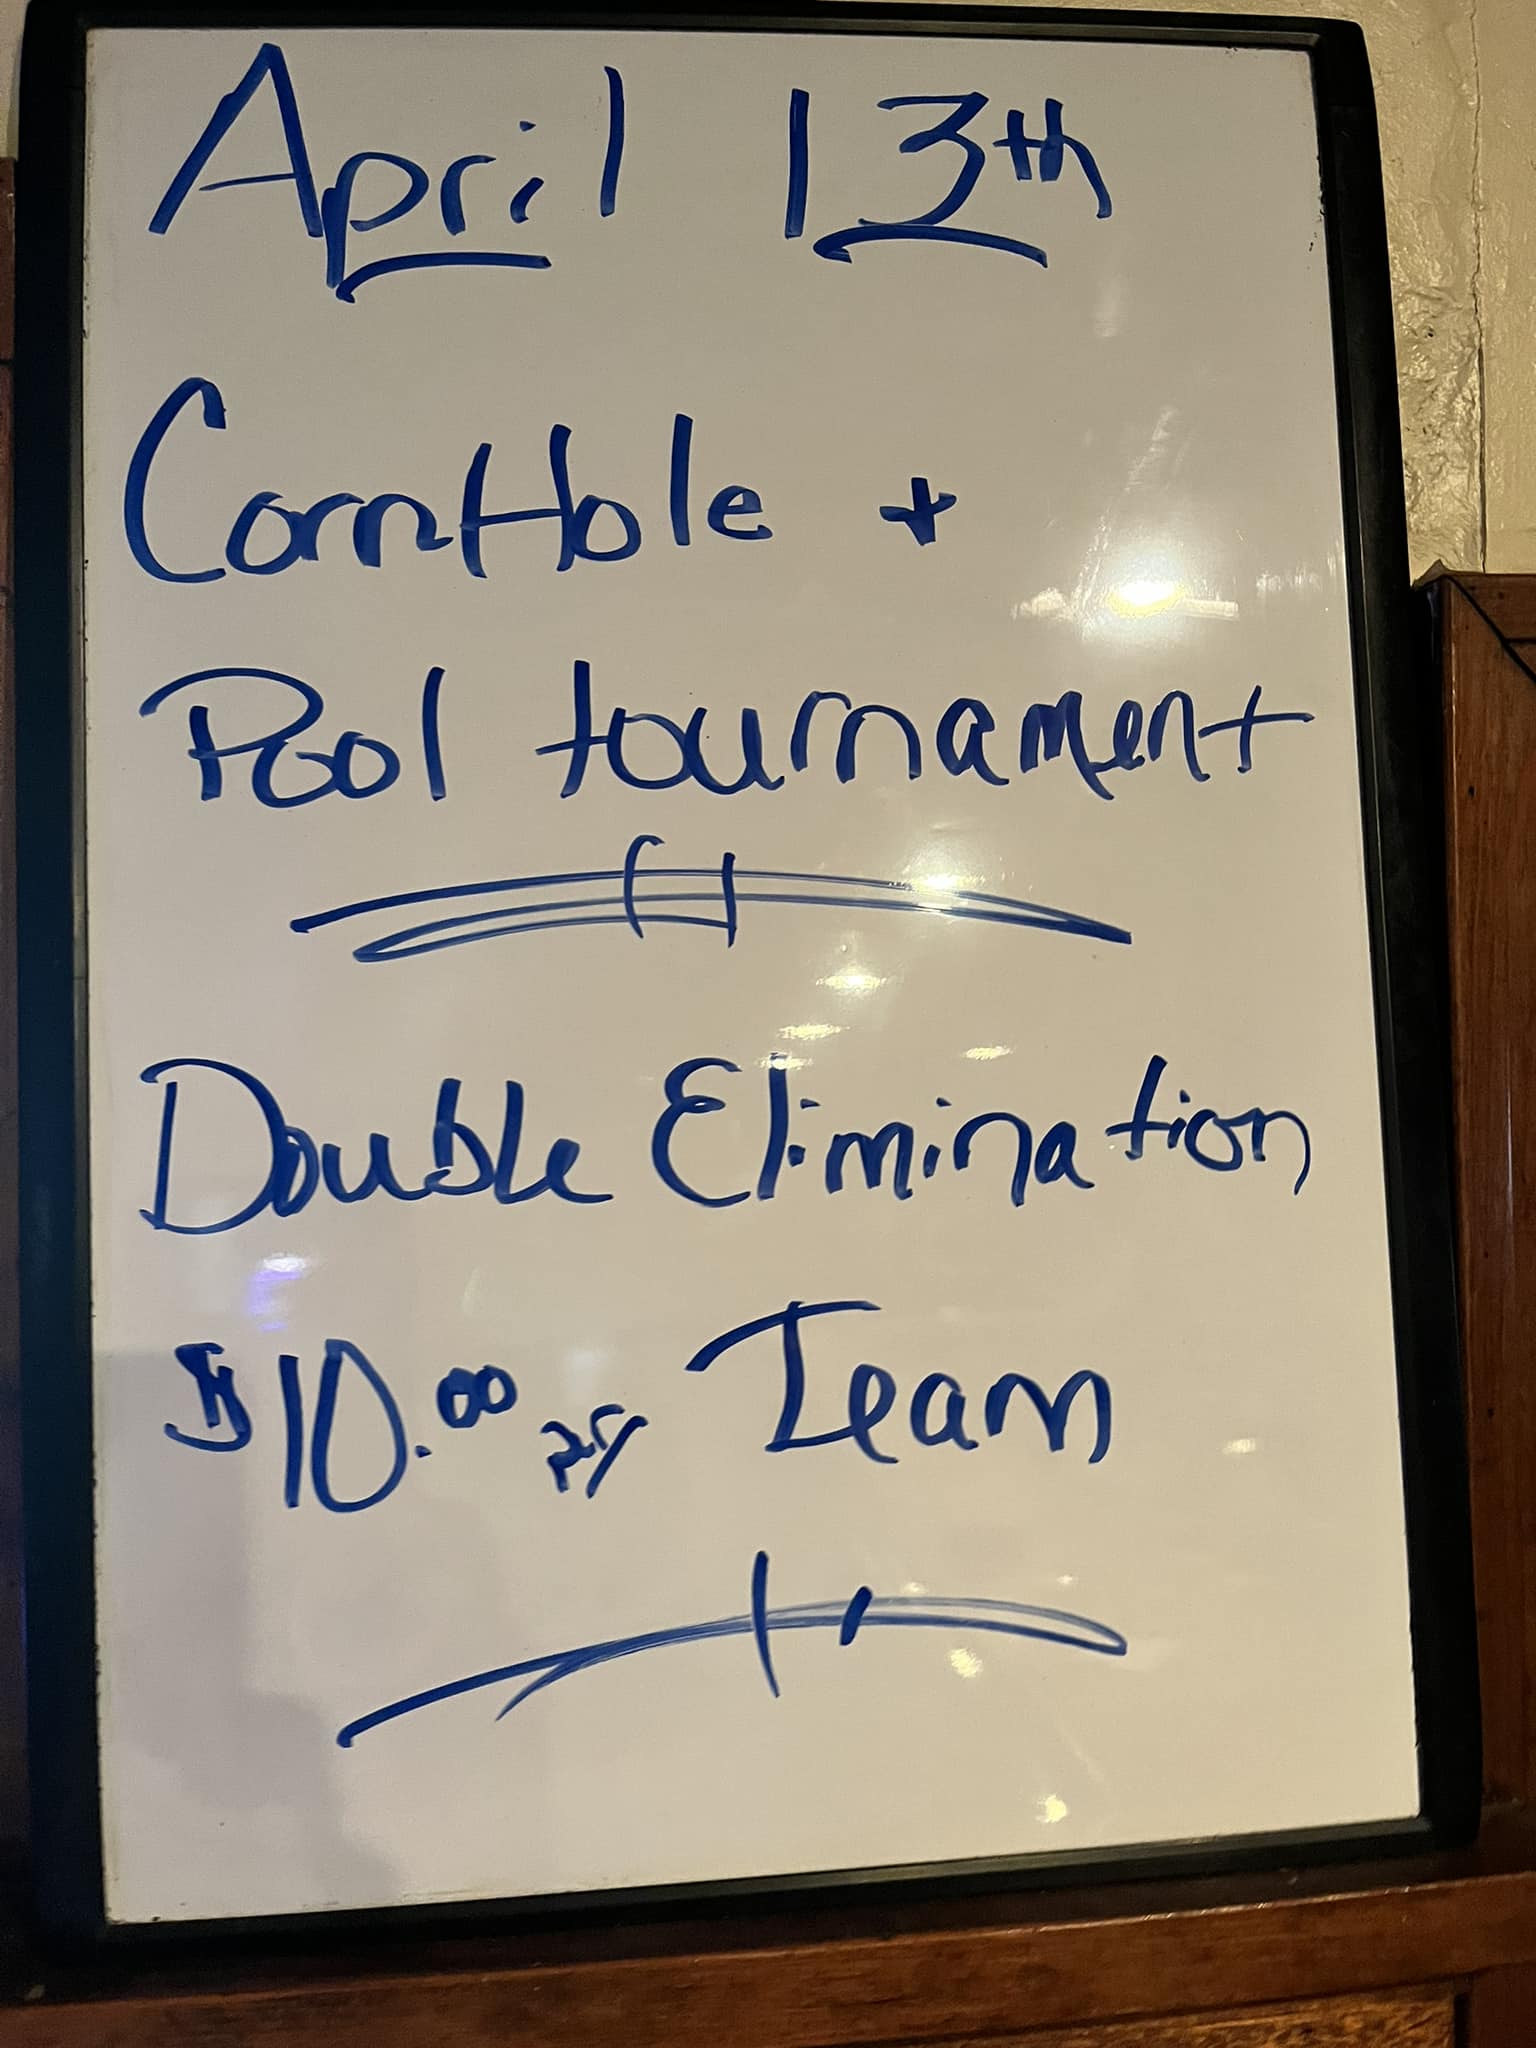 April 13th
CornHole +
Pool tournament
Double Elimination
$10.00 per Team